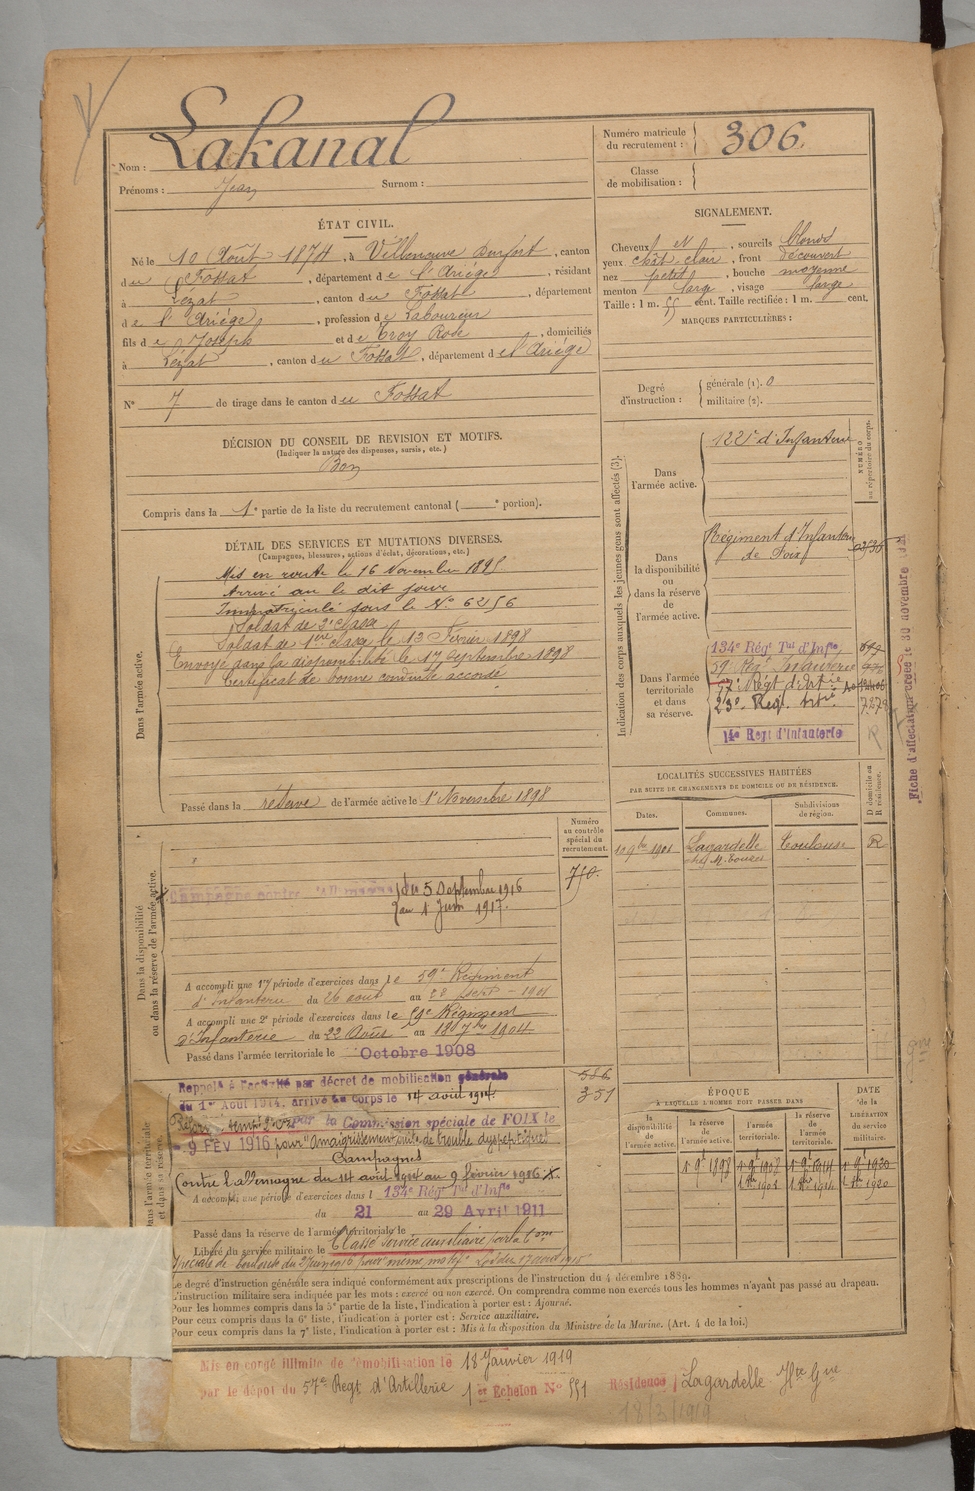 Nom : Lakanal
Prénoms : Jean Surnom :
Numéro matricule du recrutement : 306
Classe de mobilisation :
ÉTAT CIVIL.
Né le 10 Août 1874, à Villeneuve Durfort, canton
du Fossat, département de l'Ariége, résidant
à Lézat, canton du Fossat, département
de l'Ariége, profession de Laboureur
fils de Joseph et de Troy Rose, domiciliés
à Lézat, canton du Fossat, département de l'Ariége
N° 7 de tirage dans le canton du Fossat
SIGNALEMENT.
Cheveux et sourcils blonds
yeux chât. clair, front découvert
nez petit, bouche moyenne
menton large, visage large
Taille : 1 m. 55 cent. Taille rectifiée : 1 m. cent.
MARQUES PARTICULIÈRES :
Degré d'instruction : générale (1). 0
militaire (2).
DÉCISION DU CONSEIL DE REVISION ET MOTIFS.
(Indiquer la nature des dispenses, sursis, etc.)
Bon
Compris dans la 1e partie de la liste du recrutement cantonal ( e portion).
DÉTAIL DES SERVICES ET MUTATIONS DIVERSES.
(Campagnes, blessures, actions d'éclat, décorations, etc.)
Dans l'armée active.
Mis en route le 16 Novembre 1895
Arrivé au le dit jour
Immatriculé sous le N° 6256
Soldat de 2e classe
Soldat de 1ere classe le 13 Février 1898
Envoyé dans la disponibilité le 17 Septembre 1898
Certificat de bonne conduite accordé
Passé dans la réserve de l'armée active le 1er Novembre 1898
Indication des corps auxquels les jeunes gens sont affectés (3).
NUMÉRO au répertoire du corps.
Dans l'armée active.
122e d'Infanterie
Dans la disponibilité ou dans la réserve de l'armée active.
Régiment d'Infanterie
de Foix
Dans l'armée territoriale et dans sa réserve.
134e Régt Tal d'Infie
59 Régt Infanterie
57e Régt d'Artie
23e Regt. Artie 7278
14e Regt d'Infanterie R
Fiche d'affectation créée le 30 novembre
LOCALITÉS SUCCESSIVES HABITÉES
PAR SUITE DE CHANGEMENTS DE DOMICILE OU DE RÉSIDENCE.
Dates. Communes. Subdivisions de région. D domicile ou R résidence.
10 9bre 1901 Lagardelle Toulouse R
Dans la disponibilité ou dans la réserve de l'armée active.
Numéro au contrôle spécial du recrutement.
750.
Campagne contre l'Allemagne du 5 Septembre 1916
au 1 Juin 1917.
A accompli une 1re période d'exercices dans le 59e Régiment
d'Infanterie du 26 août au 22 Sept - 1901
A accompli une 2e période d'exercices dans le 59e Régiment
d'Infanterie du 22 Août au 18 7bre 1904
Passé dans l'armée territoriale le Octobre 1908
Dans l'armée territoriale et dans sa réserve.
586
351
Rappelé à l'activité par décret de mobilisation générale
du 1er Août 1914. arrivé au corps le 14 août 1914.
par la Commission spéciale de FOIX le
9 FEV 1916 pour "Amaigrissement suite de trouble dyspeptiques"
Campagnes
Contre l'allemagne du 14 août 1914 au 9 février 1916 X.
A accompli une période d'exercices dans l 134e Régt Tal d'Infie
du 21 au 29 Avril 1911
Passé dans la réserve de l'armée territoriale le
Libéré du service militaire le Classé Service auxiliaire par la Com.
Spéciale de du 2 Juin 1916 pour même motif. Loi du 17 août 1915
ÉPOQUE
À LAQUELLE L'HOMME DOIT PASSER DANS
la disponibilité de l'armée active. la réserve de l'armée active. l'armée territoriale. la réserve de l'armée territoriale.
DATE de la LIBÉRATION du service militaire.
1er 9bre 1898 1er 9bre 1908 1er 9bre 1914 1er 9bre 1920
Le degré d'instruction générale sera indiqué conformément aux prescriptions de l'instruction du 4 décembre 1889.
L'instruction militaire sera indiquée par les mots : exercé ou non exercé. On comprendra comme non exercés tous les hommes n'ayant pas passé au drapeau.
Pour les hommes compris dans la 5e partie de la liste, l'indication à porter est : Ajourné.
Pour ceux compris dans la 6e liste, l'indication à porter est : Service auxiliaire.
Pour ceux compris dans la 7e liste, l'indication à porter est : Mis à la disposition du Ministre de la Marine. (Art. 4 de la loi.)
Mis en congé illimité de démobilisation le 18 Janvier 1919
par le dépot du 57e Regt d'Artillerie 1er Echelon N° 551 Résidence Lagardelle Hte Gne
18/3/1919